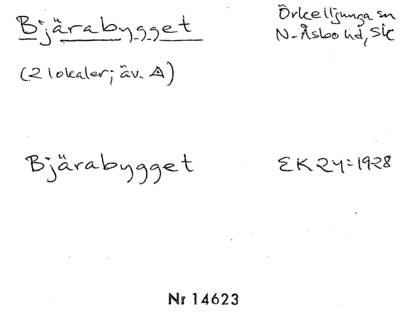 Bjärabygget
Örkelljunga sn
N-Åsbo hd, Sk
(2 lokaler; äv. A)
Bjärabygget
EK 24 = 1928
Nr 14623